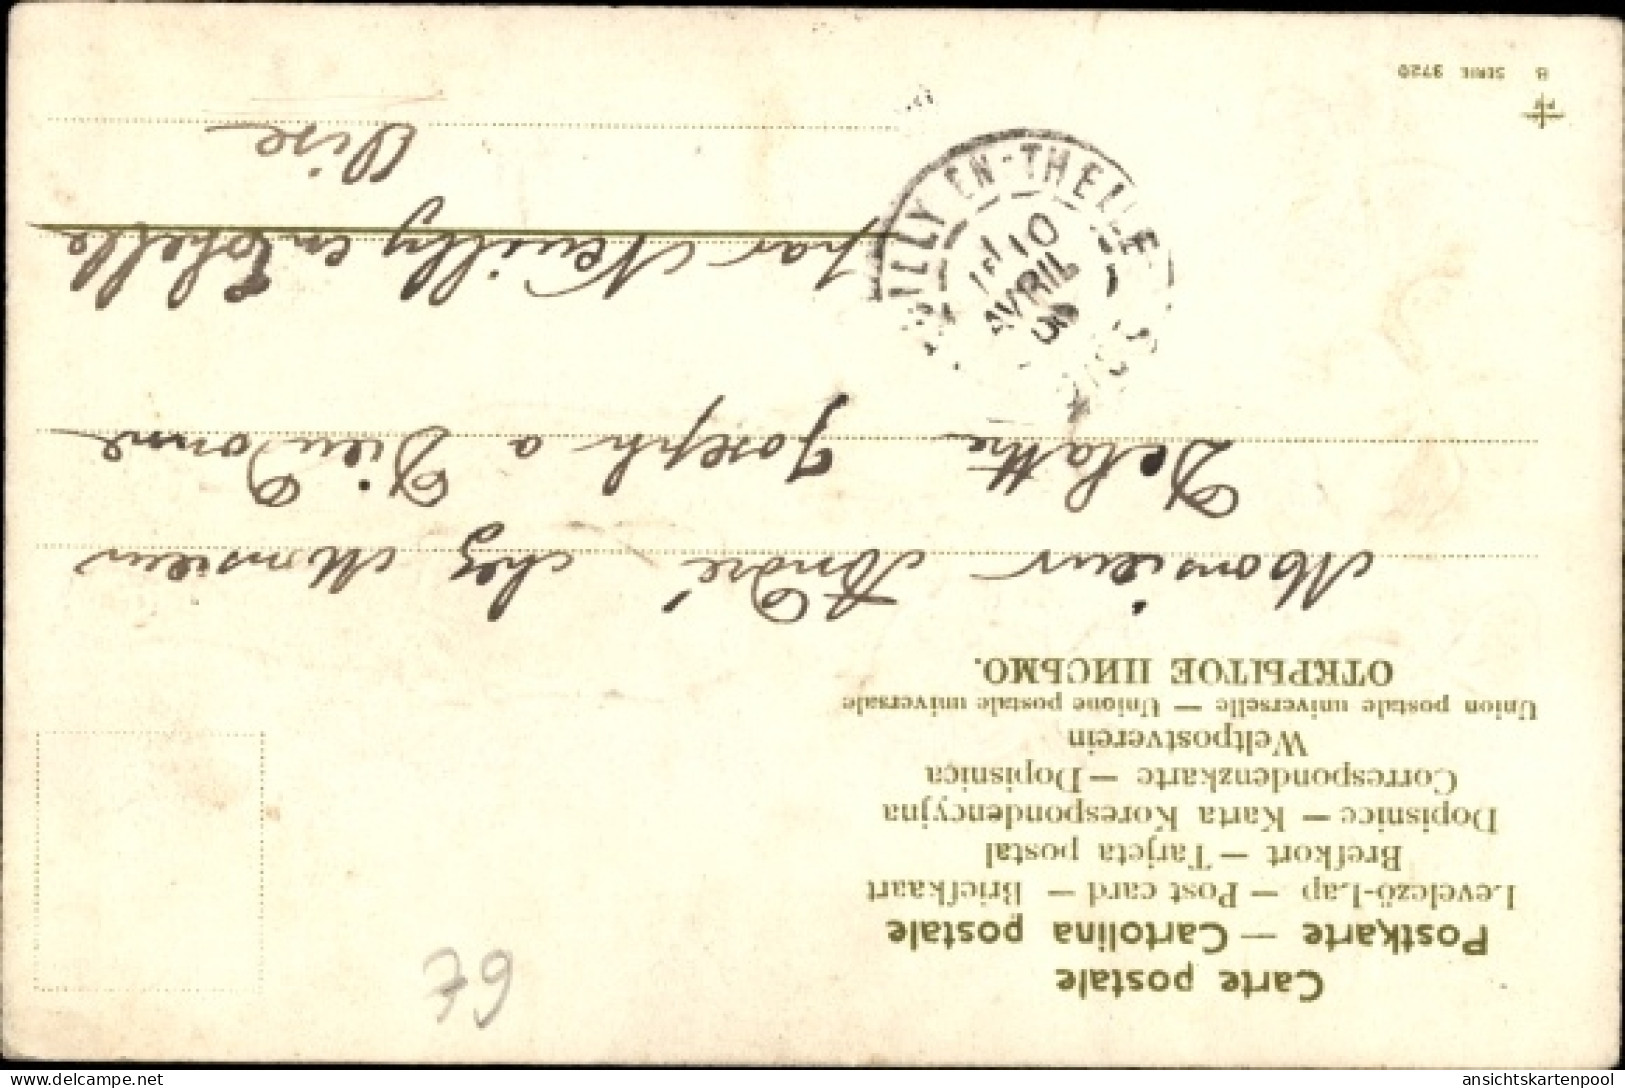 Carte postale
Postkarte — Cartolina postale
Levelező-Lap — Post card — Briefkaart
Brefkort — Tarjeta postal
Dopisnice — Karta Korespondencyjna
Correspondenzkarte — Dopisnica
Weltpostverein
Union postale universelle — Unione postale universale
ОТКРЫТОЕ ПИСЬМО.
Monsieur André chez Monsieur
Delattre Joseph a Dieudonne
par Neuilly en Thelle
Oise
ILLY-EN-THELLE
10
AVRIL
06
B SERIE 3720
79
ansichtskartenpool